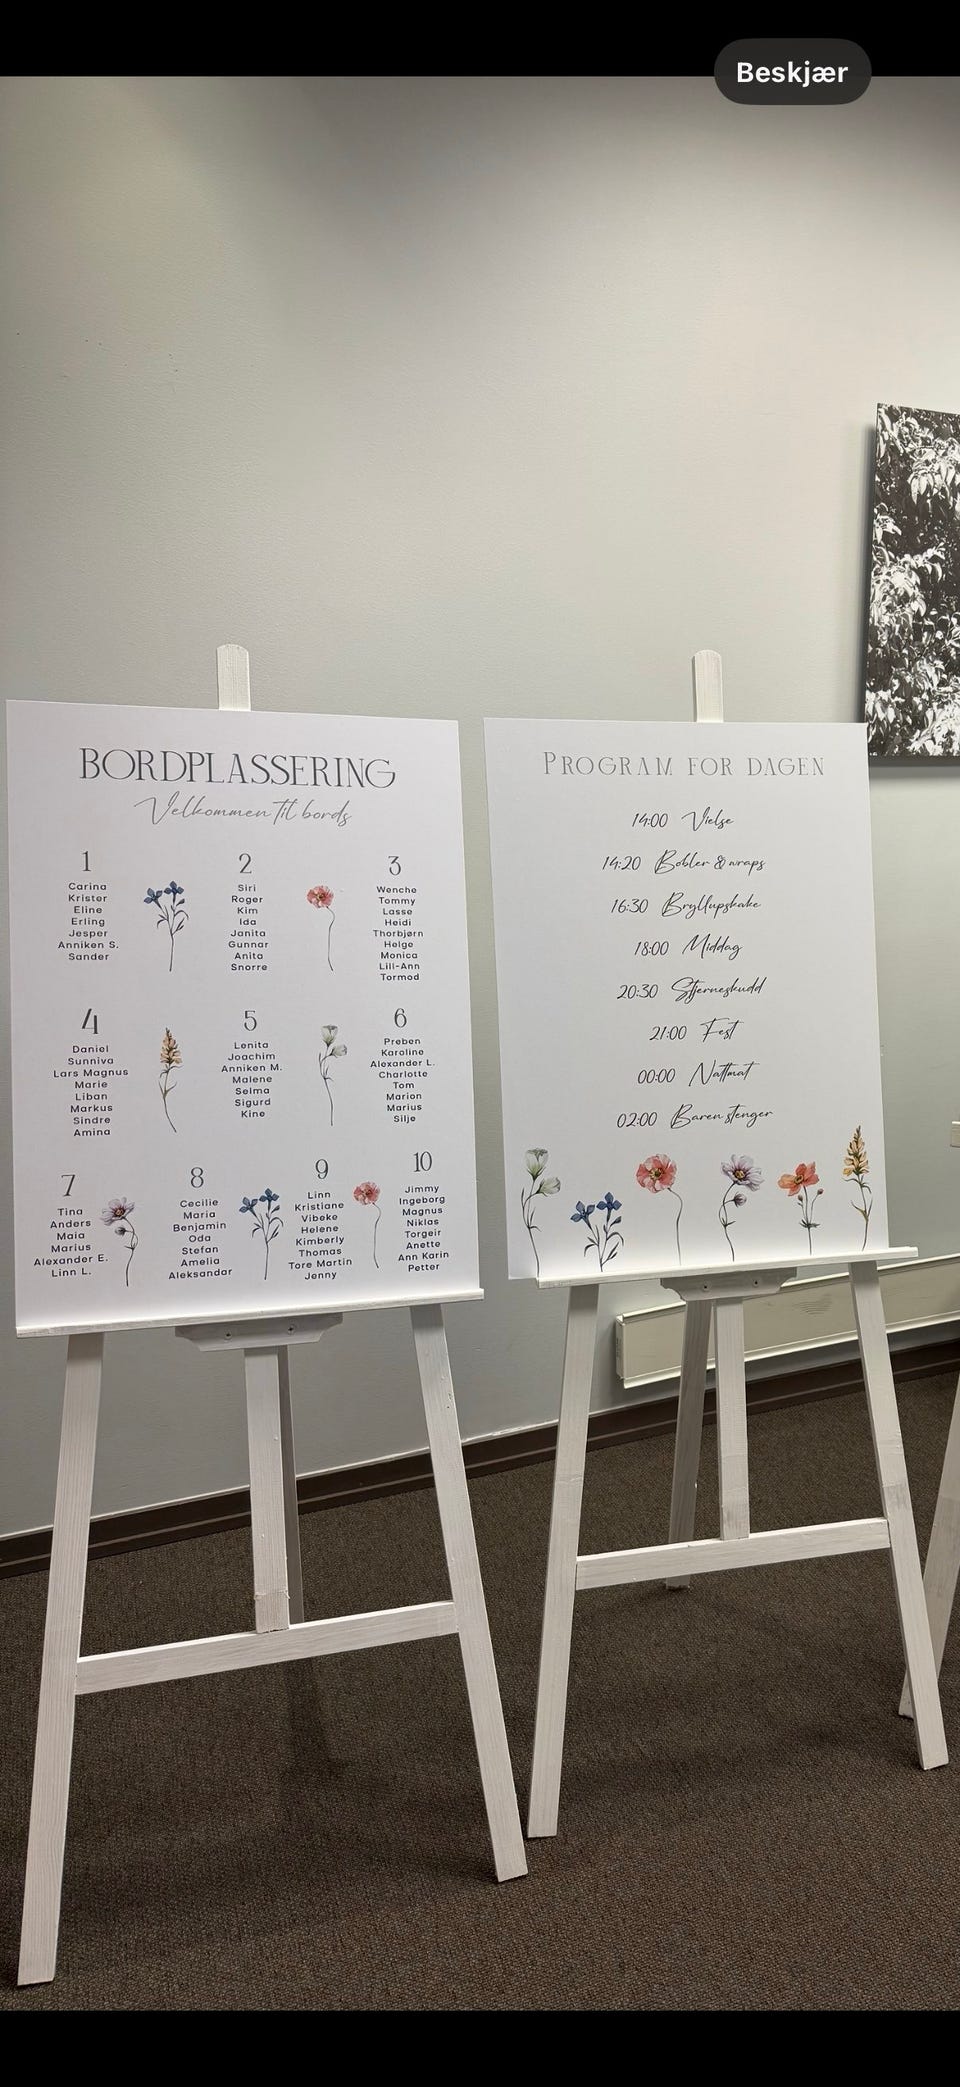 Beskjær
BORDPLASSERING
Velkommen til bords
1
Carina
Krister
Eline
Erling
Jesper
Anniken S.
Sander
2
Siri
Roger
Kim
Ida
Janita
Gunnar
Anita
Snorre
3
Wenche
Tommy
Lasse
Heidi
Thorbjørn
Helge
Monica
Lill-Ann
Tormod
4
Daniel
Sunniva
Lars Magnus
Marie
Liban
Markus
Sindre
Amina
5
Lenita
Joachim
Anniken M.
Malene
Selma
Sigurd
Kine
6
Preben
Karoline
Alexander L.
Charlotte
Tom
Marion
Marius
Silje
7
Tina
Anders
Maia
Marius
Alexander E.
Linn L.
8
Cecilie
Maria
Benjamin
Oda
Stefan
Amelia
Aleksandar
9
Linn
Kristiane
Vibeke
Helene
Kimberly
Thomas
Tore Martin
Jenny
10
Jimmy
Ingeborg
Magnus
Niklas
Torgeir
Anette
Ann Karin
Petter
PROGRAM FOR DAGEN
14:00 Vielse
14:20 Bobler & wraps
16:30 Bryllupskake
18:00 Middag
20:30 Stjerneskudd
21:00 Fest
00:00 Nattmat
02:00 Baren stenger